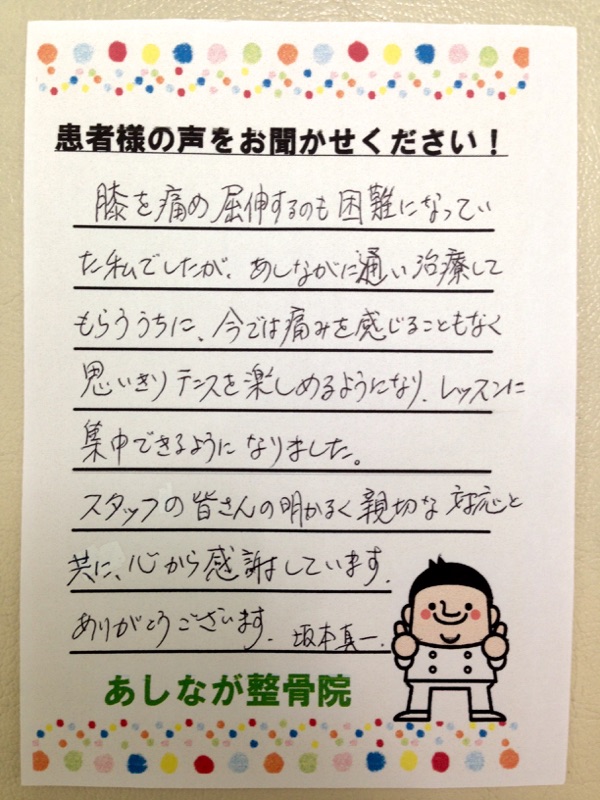 患者様の声をお聞かせください！
膝を痛め屈伸するのも困難になってい
た私でしたが、あしながに通い治療して
もらううちに、今では痛みを感じることもなく
思いきりテニスを楽しめるようになり、レッスンに
集中できるようになりました。
スタッフの皆さんの明かるく親切な対応と
共に、心から感謝しています。
ありがとうございます。 坂本真一.
あしなが整骨院